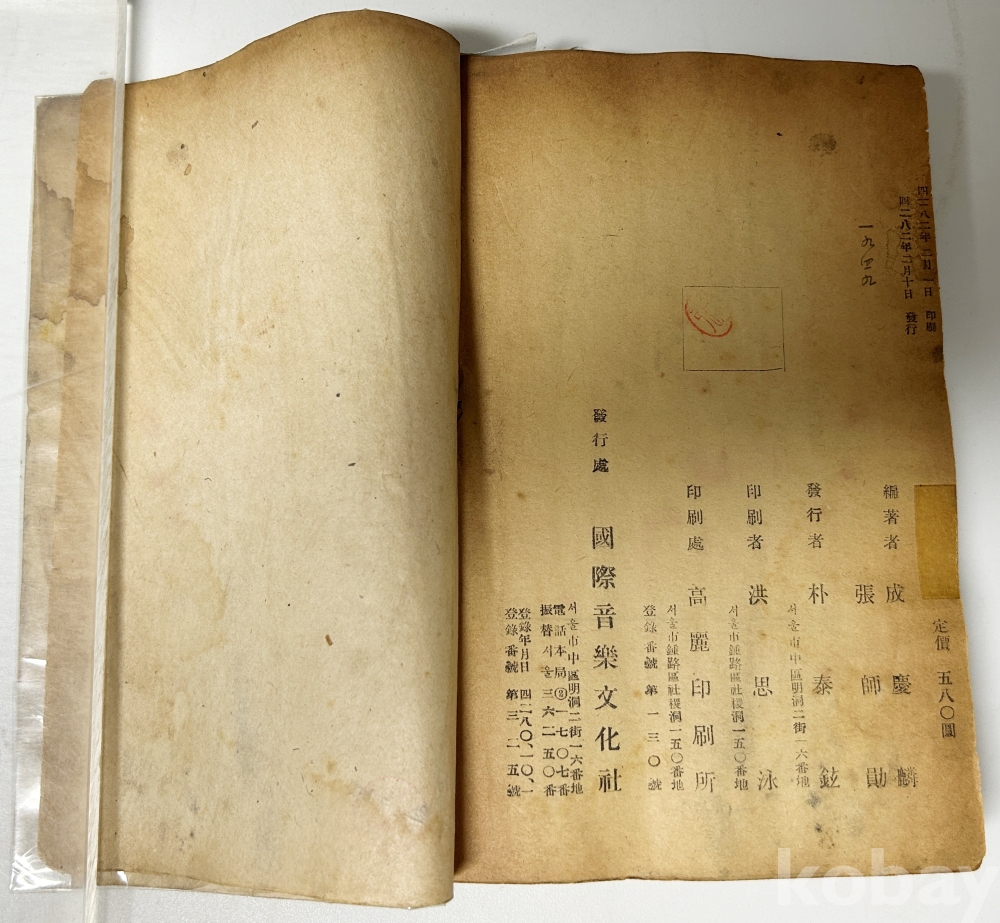 四二八二年 二月 一日 印刷
四二八二年 二月十日 發行
一九四九
定價 五八〇圓
編著者 成慶麟
張師勛
發行者 朴泰鉉
서울市中區明洞二街一六番地
印刷者 洪思泳
서울市鍾路區社稷洞一五〇番地
印刷處 高麗印刷所
서울市鍾路區社稷洞一五〇番地
登錄番號 第一三〇號
發行處 國際音樂文化社
서울市中區明洞二街一六番地
電話本局②一七〇七番
振替서울三六二五〇番
登錄年月日 四二八〇、一〇、一
登錄番號 第三二五號
kobay